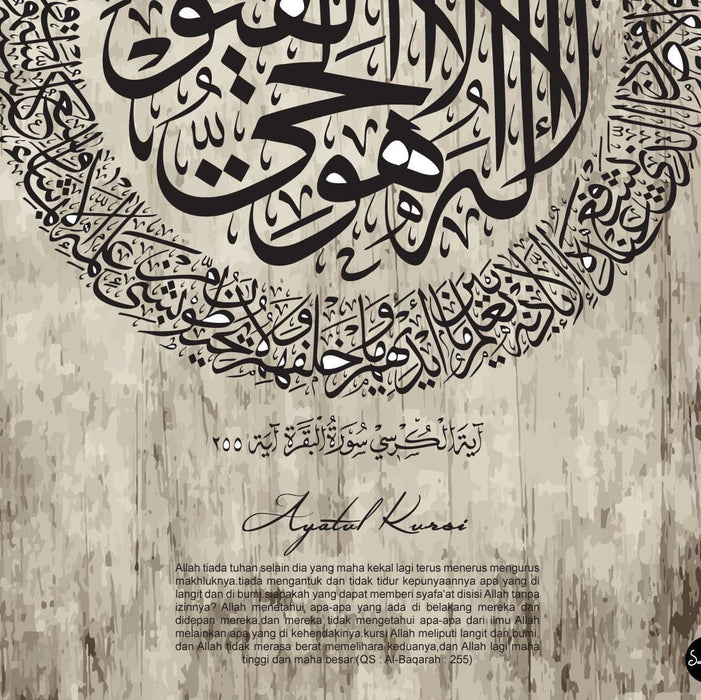 لا إله
إلا
هو
الحي
القيوم
يشفع عنده إلا بإذنه يعلم ما بين أيديهم وما خلفهم ولا يحيطون بشيء من علمه
آية الكرسي سورة البقرة آية ٢٥٥
Ayatul Kursi
Allah tiada tuhan selain dia yang maha kekal lagi terus menerus mengurus
makhluknya.tiada mengantuk dan tidak tidur kepunyaannya apa yang di
langit dan di bumi,siapakah yang dapat memberi syafa'at disisi Allah tanpa
izinnya? Allah menetahui apa-apa yang ada di belakang mereka dan
didepan mereka,dan mereka tidak mengetahui apa-apa dari ilmu Allah
melainkan apa yang di kehendakinya.kursi Allah meliputi langit dan bumi.
dan Allah tidak merasa berat memelihara keduanya,dan Allah lagi maha
tinggi dan maha besar.(QS : Al-Baqarah : 255)